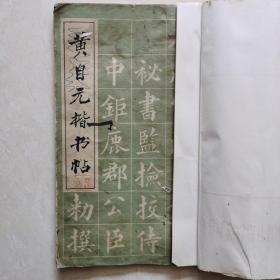 黄自元楷书帖
祕書監撿挍侍
中鉅鹿郡公臣
勑撰